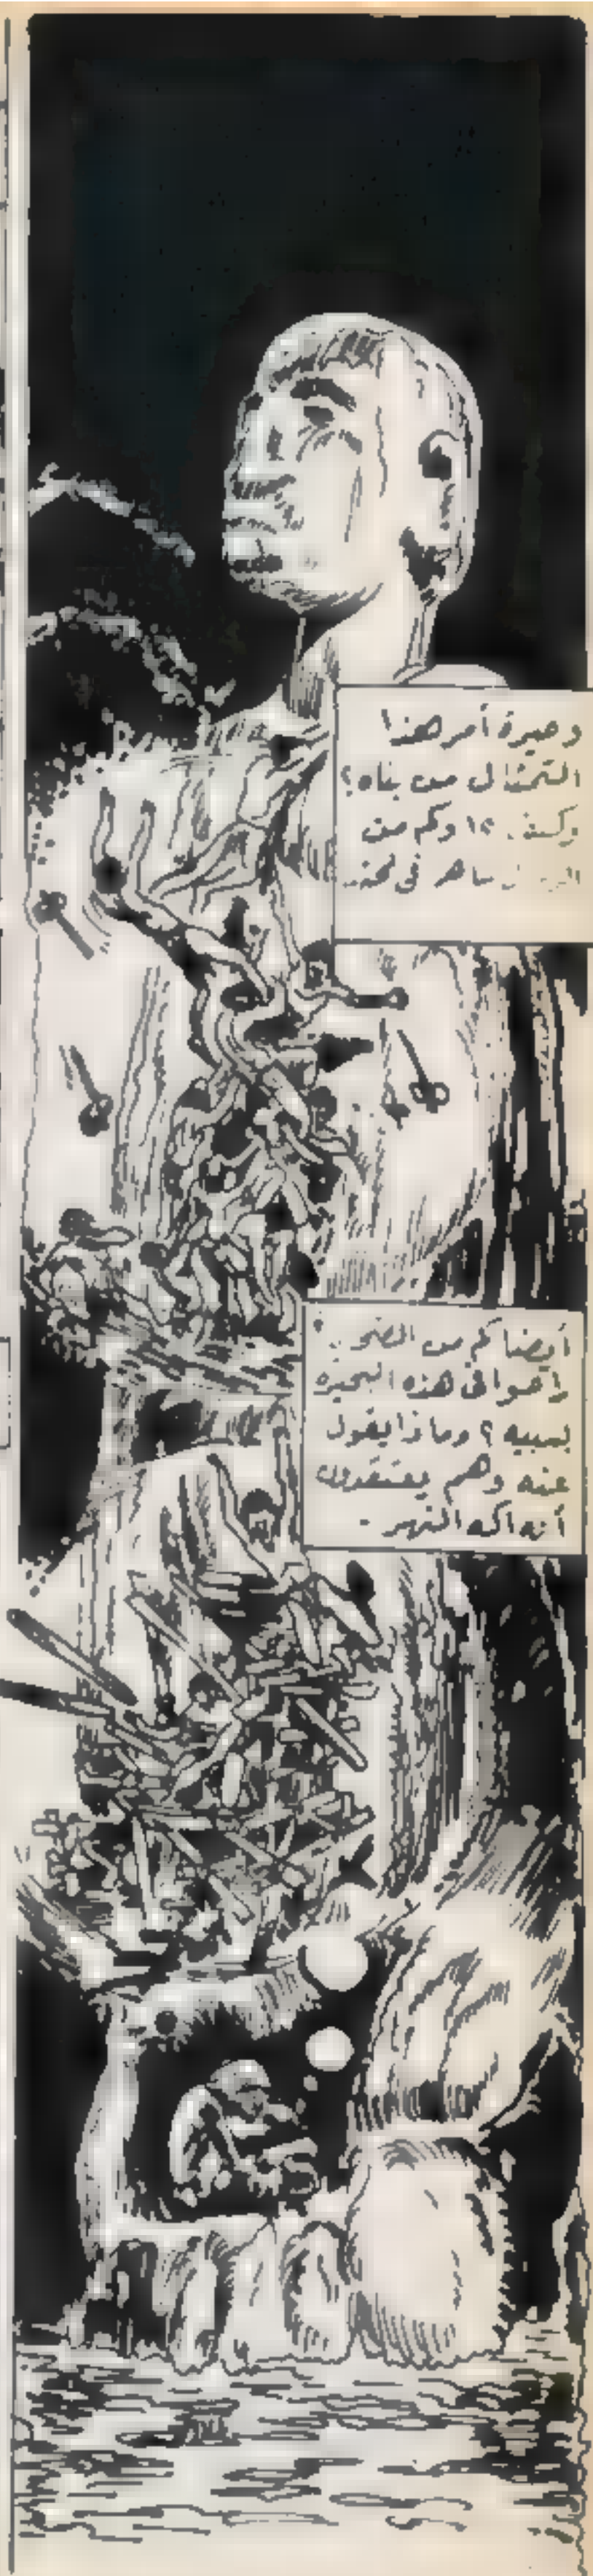 وحيرة أمر هذا
التمثال من بناه؟
وكيف ؟! وكم من
ساهر فى نحته
أيضا كم من الضحايا
راحوا فى هذه البحيره
بسببه ؟ وماذا يقول
عنه وهم يعتقدون
أنه اله النهر .